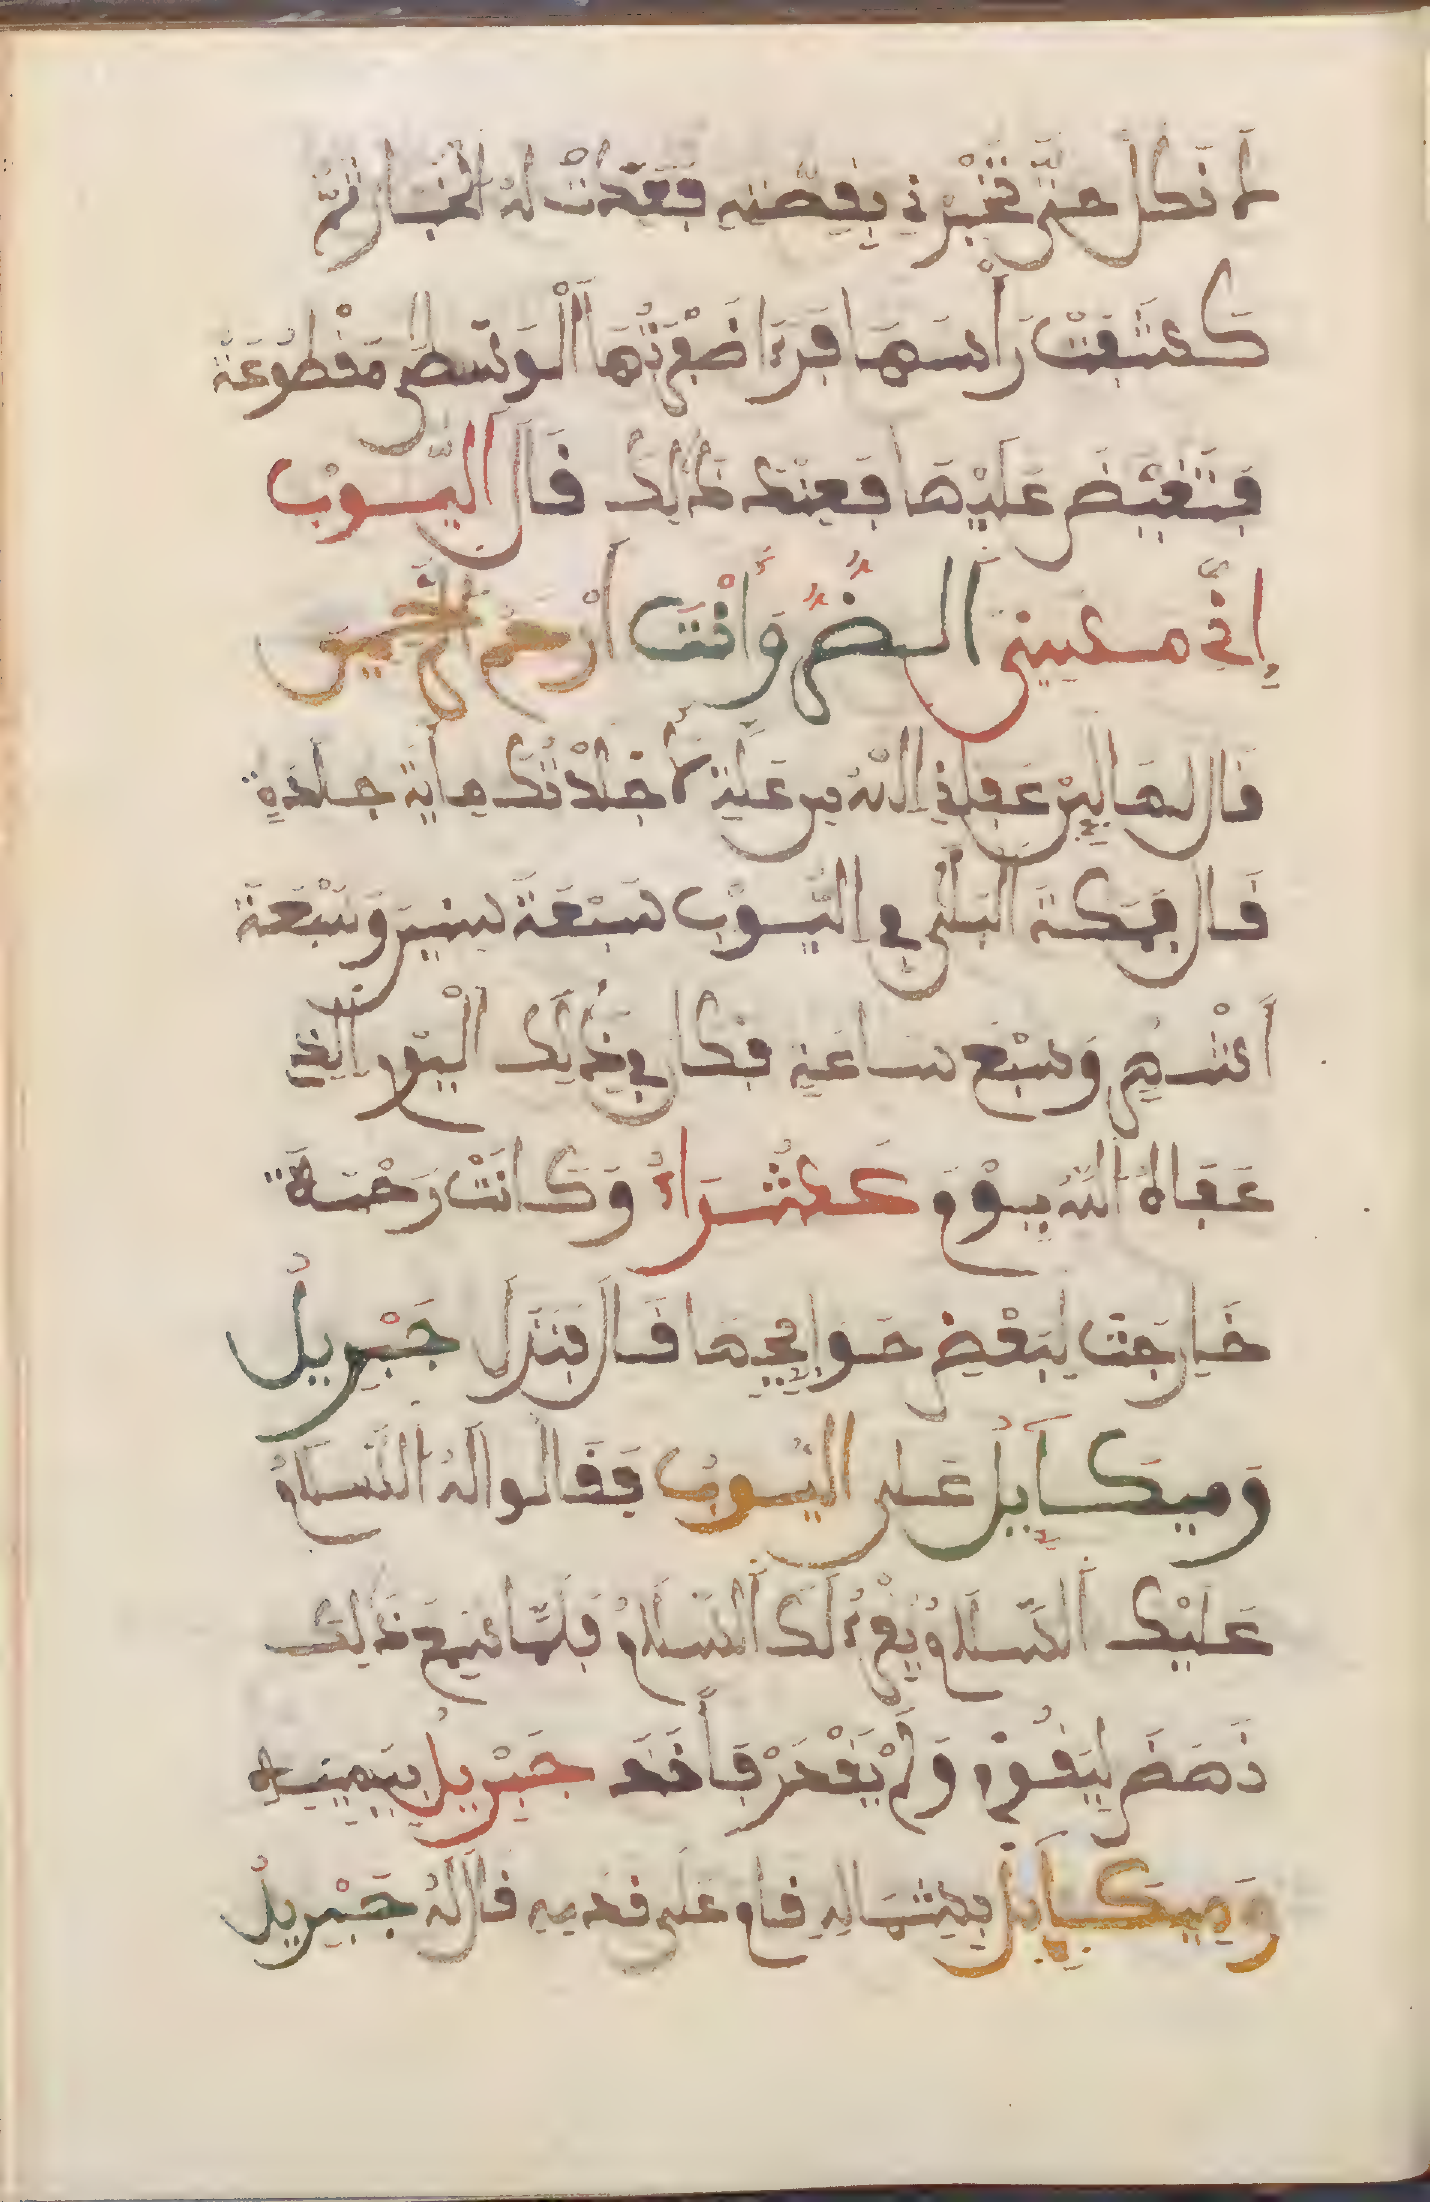 لا نكل حتى تخبرني بقصته فعدت له الخبار ثم
كشفت رأسها فرءا ضفرتها الوسطى مقطوعة
فتغيض عليها فعند ذالك قال اليوب
إني مسني الضر وأنت أرحم الرحمين
قال لها لين عفاني الله من علية لأجلدنك ماية جلدة
قال فمكة البلى في اليوب سبعة سنين وسبعة
أشهر وسبع ساعة فكا في ذلك اليوم الذي
عفاه الله بيوم عشوراء وكانت رحمة
خارجت لبعض حوايجها قال فنزل جبريل
وميكايل على اليوب فقالوا له السلام
عليك السلام يقرء لك السلام فلما سمع ذلك
نهض ليقوم ولم يقدر فأخد جبريل بيمينه
وميكايل بشماله قام على قدميه قال له جبريل